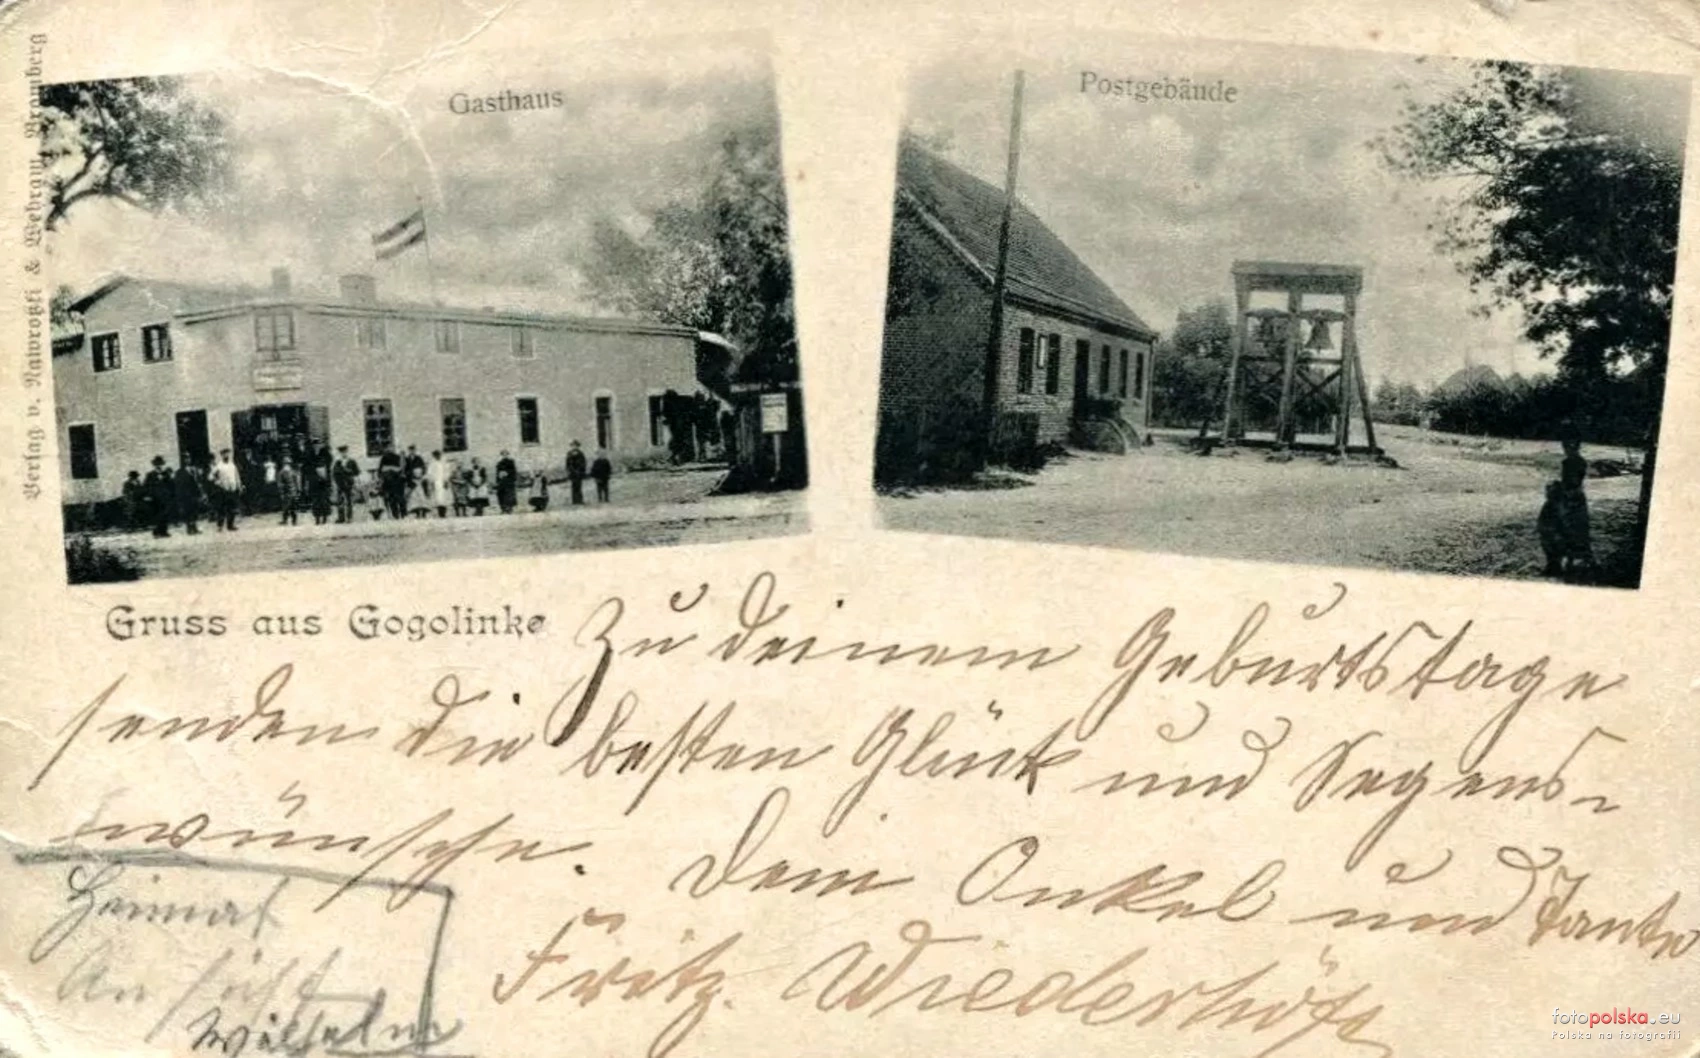 Verlag v. Nawrotzki & Wehram, Bromberg
Gasthaus
Postgebäude
Gruss aus Gogolinke
Zu deinem Geburtstage
senden die besten Glück und Segens-
wünsche. Dein Onkel und Tante
Fritz. Wiederhöft
Heimat
Ansicht
Wilhelm
fotopolska.eu
Polska na fotografii